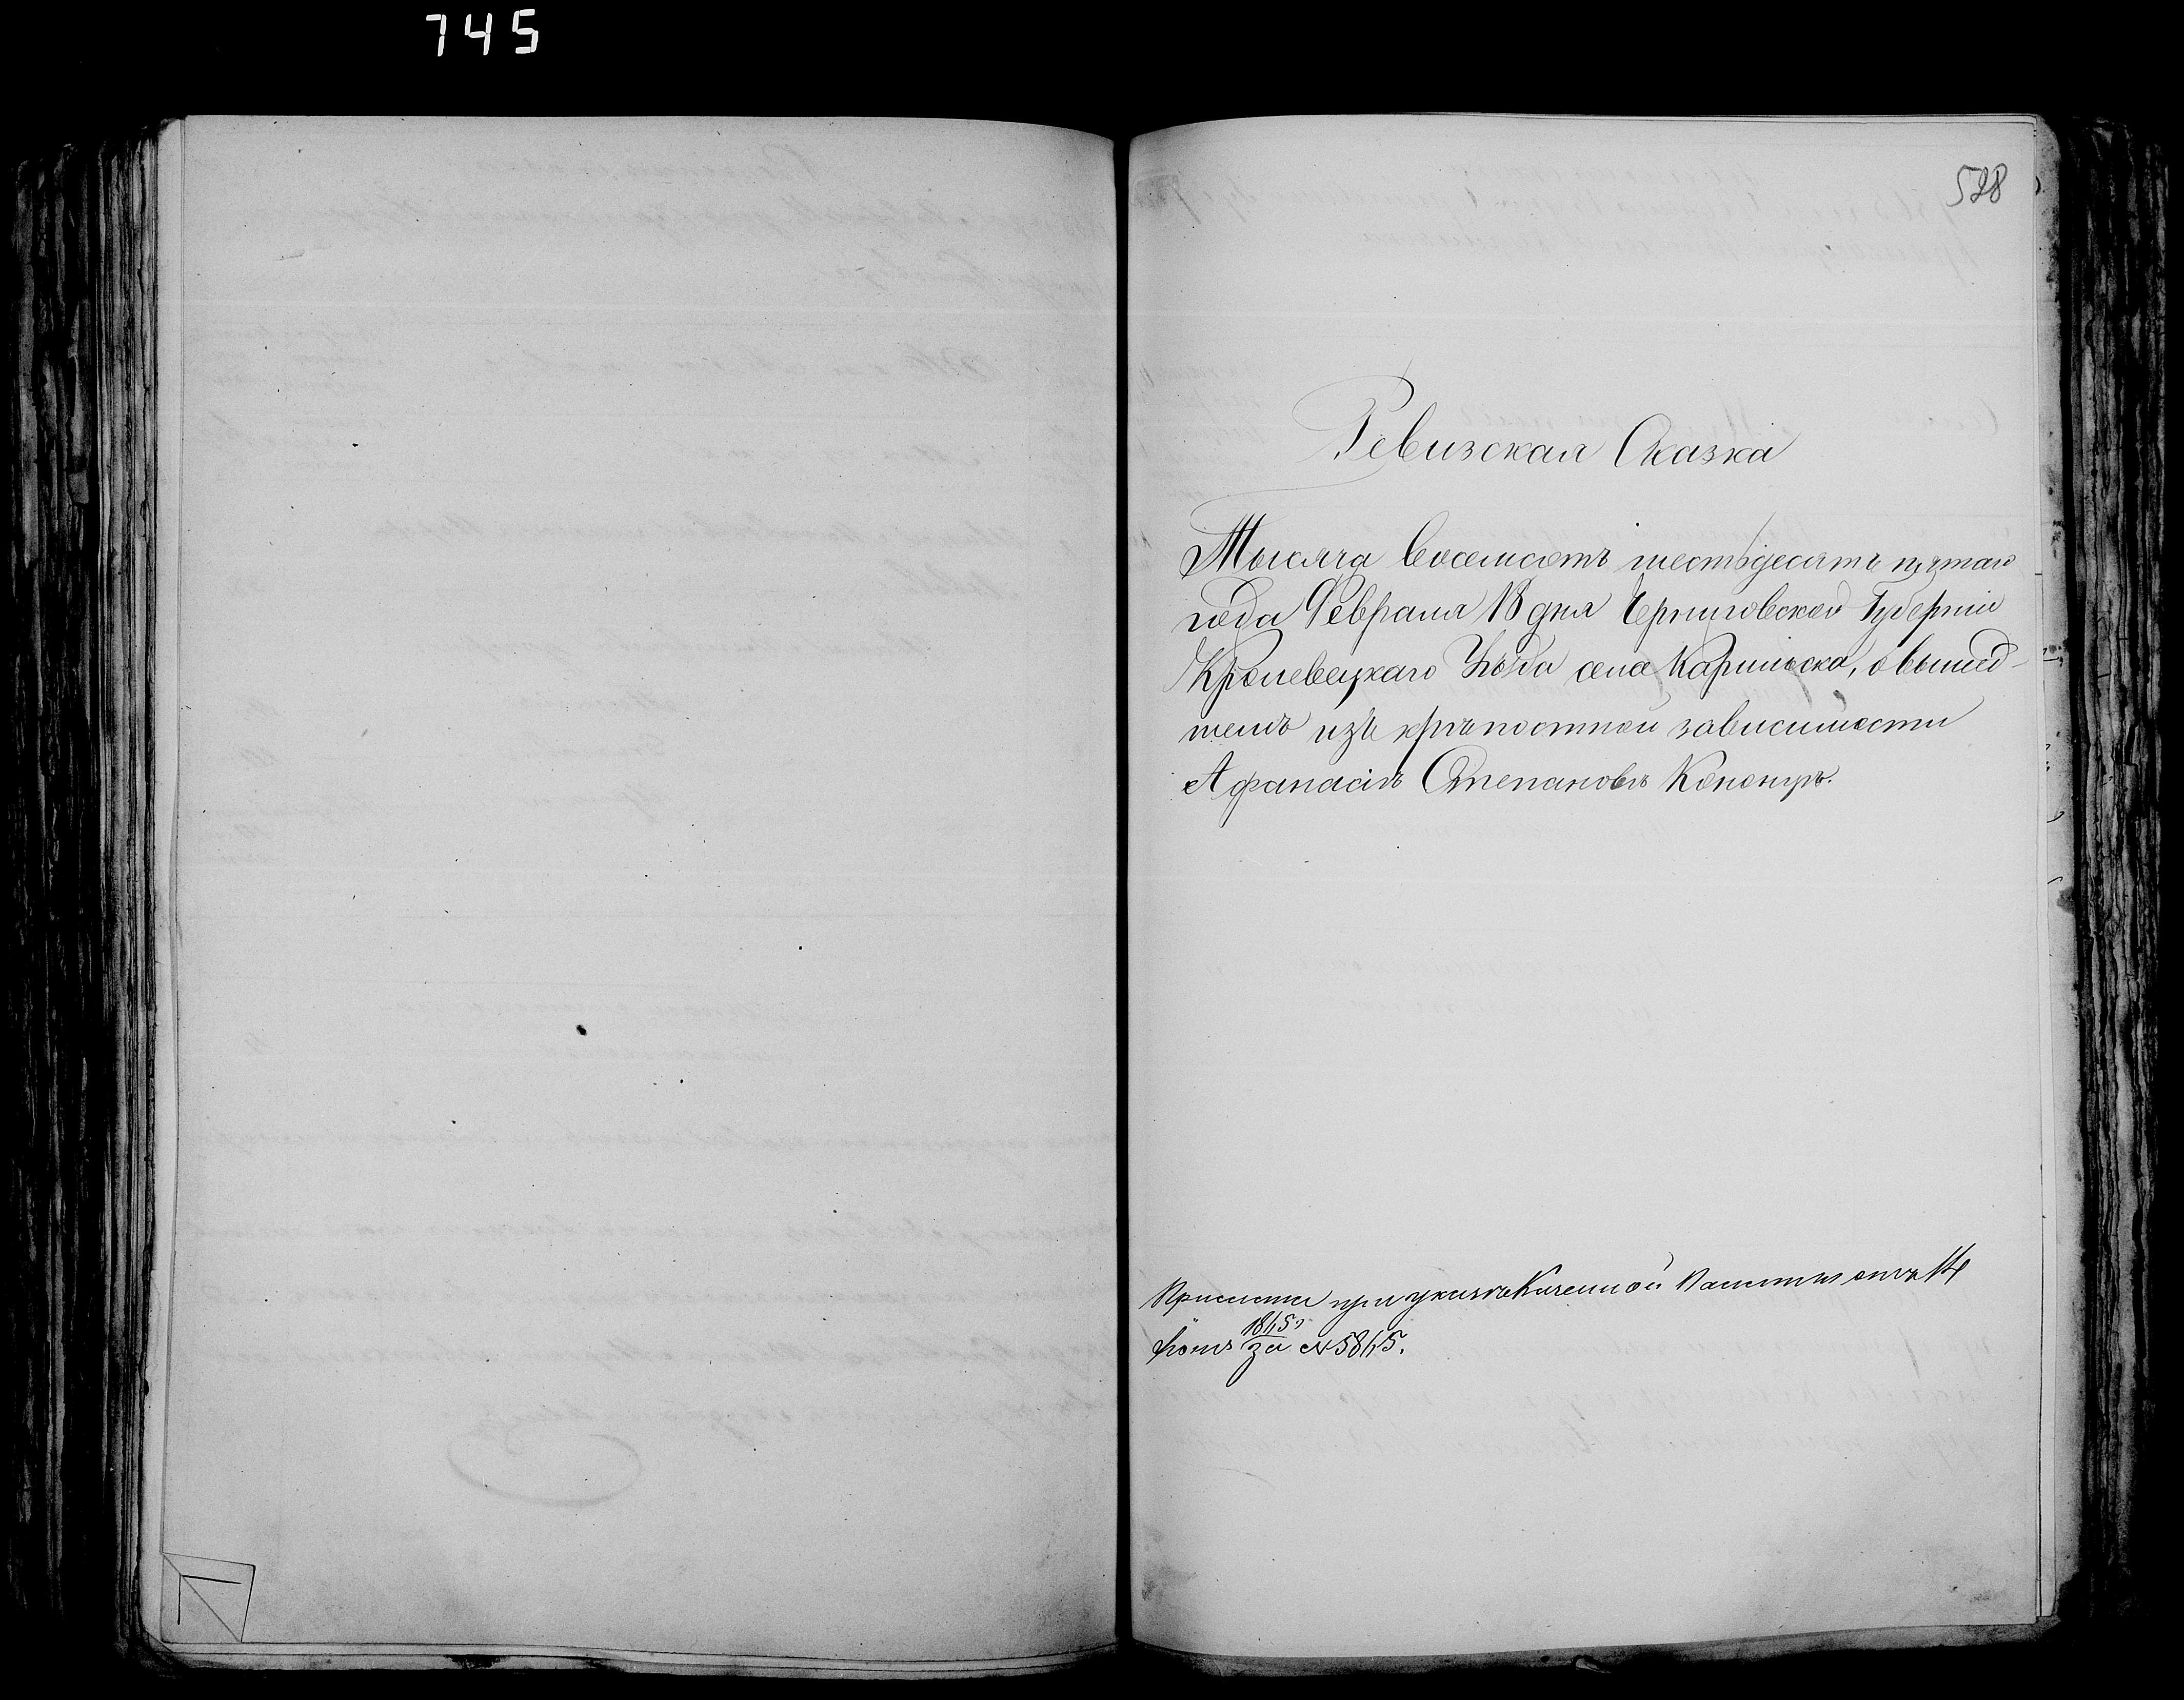 745
528
Ревизская Сказка
Тысяча восемсотъ шестьдесятъ пятаго
года Февраля 18 дня Черниговской Губерніи
Кролевецкаго Уѣзда села Карпиловка, о вышед-
шемъ изъ крѣпостной зависимости
Афанасіѣ Степановѣ Кононцѣ.
при указѣ Казенной Палаты отъ 14
1865
за №5865.